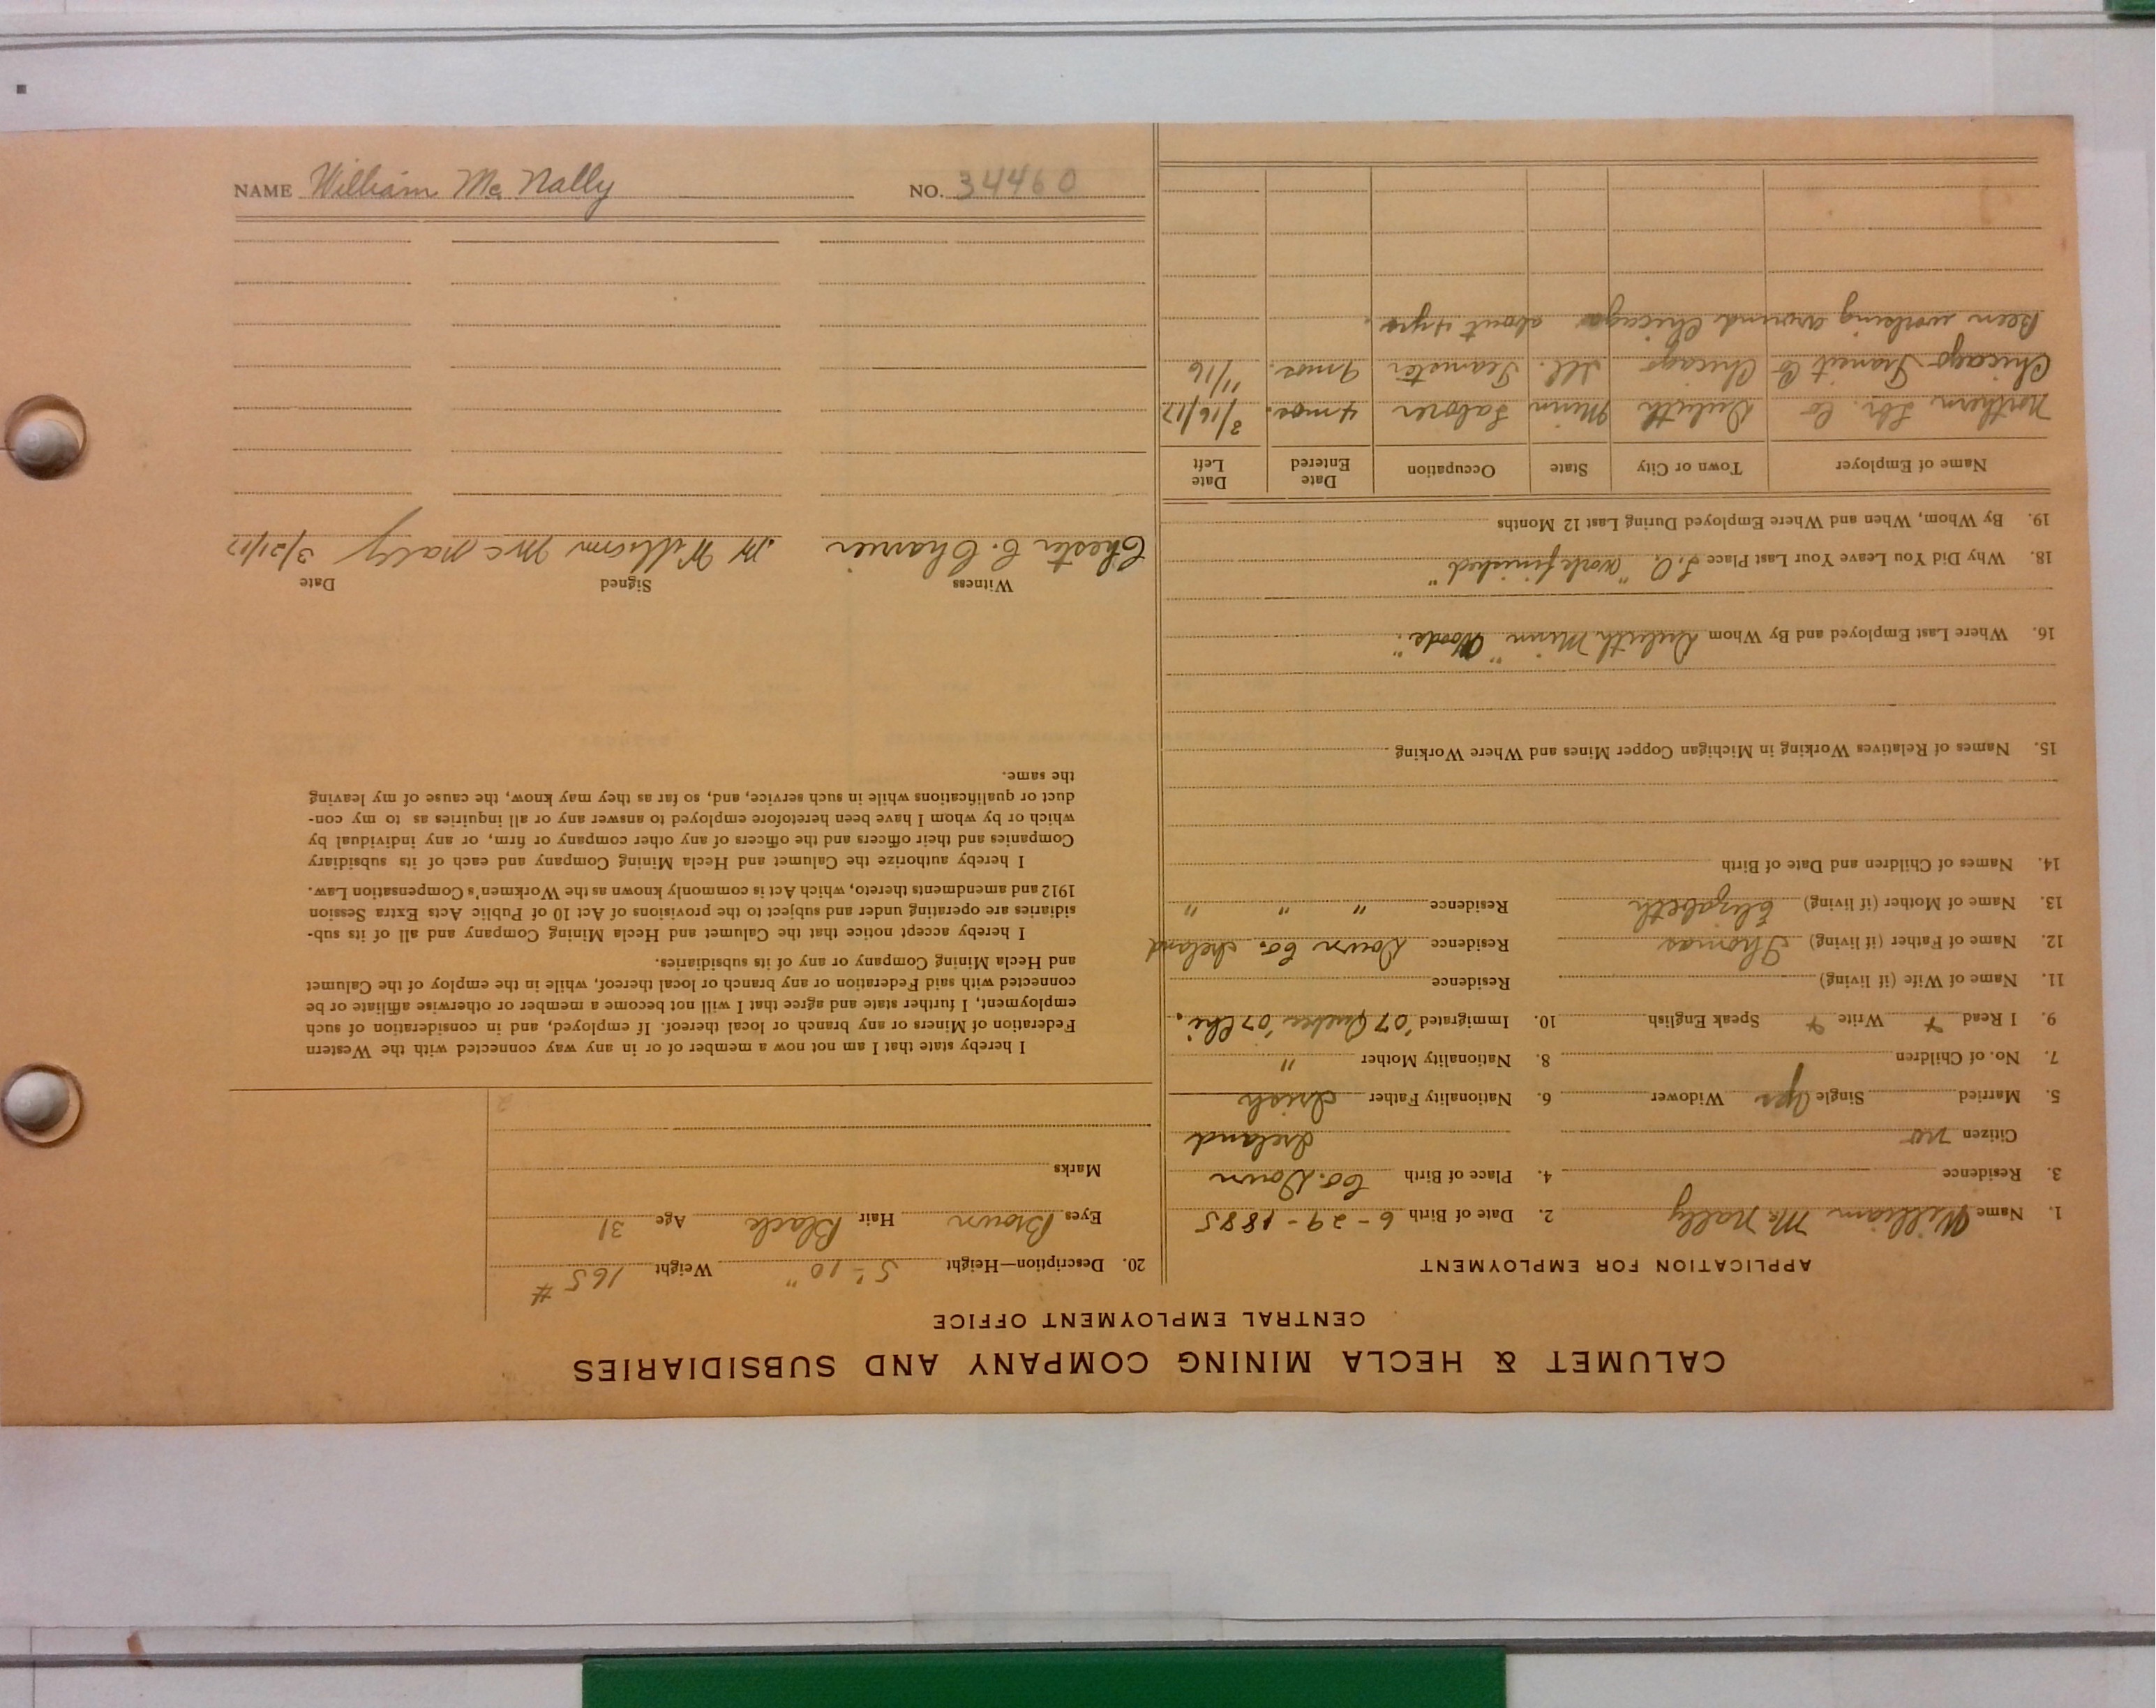 CALUMET & HECLA MINING COMPANY AND SUBSIDIARIES
CENTRAL EMPLOYMENT OFFICE
APPLICATION FOR EMPLOYMENT
1. Name William Mc Nally 2. Date of Birth 6-29-1885
3. Residence 4. Place of Birth Co. Down
Citizen no Ireland
5. Married Single yes Widower 6. Nationality Father Irish
7. No. of Children 8. Nationality Mother "
9. I Read Write Speak English 10. Immigrated '07 Quebec '07 Chi.
11. Name of Wife (if living) Residence
12. Name of Father (if living) Thomas Residence Down Co. Ireland
13. Name of Mother (if living) Elizabeth Residence " " "
14. Names of Children and Date of Birth
15. Names of Relatives Working in Michigan Copper Mines and Where Working
16. Where Last Employed and By Whom Duluth Minn "Woods."
18. Why Did You Leave Your Last Place "Work finished"
19. By Whom, When and Where Employed During Last 12 Months
Name of Employer Town or City State Occupation Date Entered Date Left
Northern Lbr. Co Duluth Minn Laborer 4 mos. 3/16/17
Chicago Transit Co Chicago Ill. Teamster 9 mos. 11/16
Been working around Chicago about 4 yrs.
20. Description—Height 5'-10" Weight 165 #
Eyes Brown Hair Black Age 31
Marks
I hereby state that I am not now a member of or in any way connected with the Western
Federation of Miners or any branch or local thereof. If employed, and in consideration of such
employment, I further state and agree that I will not become a member or otherwise affiliate or be
connected with said Federation or any branch or local thereof, while in the employ of the Calumet
and Hecla Mining Company or any of its subsidiaries.
I hereby accept notice that the Calumet and Hecla Mining Company and all of its sub-
sidiaries are operating under and subject to the provisions of Act 10 of Public Acts Extra Session
1912 and amendments thereto, which Act is commonly known as the Workmen's Compensation Law.
I hereby authorize the Calumet and Hecla Mining Company and each of its subsidiary
Companies and their officers and the officers of any other company or firm, or any individual by
which or by whom I have been heretofore employed to answer any or all inquiries as to my con-
duct or qualifications while in such service, and, so far as they may know, the cause of my leaving
the same.
Witness Signed Date
Chester C. William Mc Nally 3/21/17
NAME William Mc Nally NO. 34460